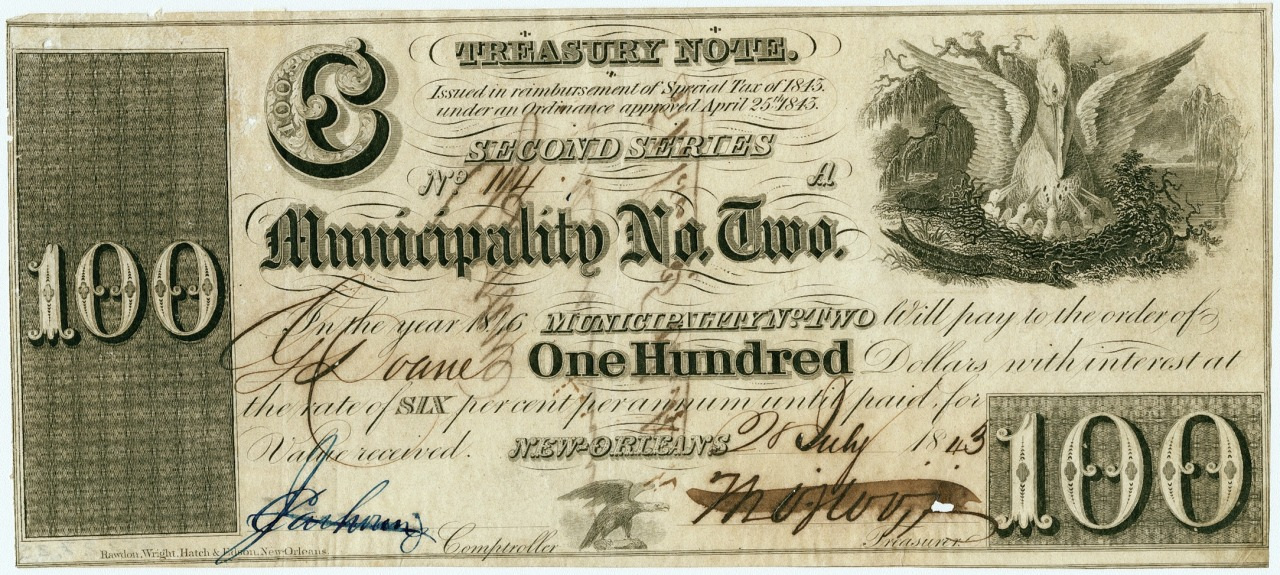 TREASURY NOTE.
Issued in reimbursement of Special Tax of 1843.
under an Ordinance approved April 25th 1843.
SECOND SERIES
No 114 A
Municipality No. Two.
100
In the year 1846 MUNICIPALITY No TWO Will pay to the order of
One Hundred Dollars with interest at
the rate of SIX per cent per annum until paid, for
Value received. NEW-ORLEANS 28 July 1843
100
Comptroller Treasurer
Rawdon, Wright, Hatch & Edson, New-Orleans.